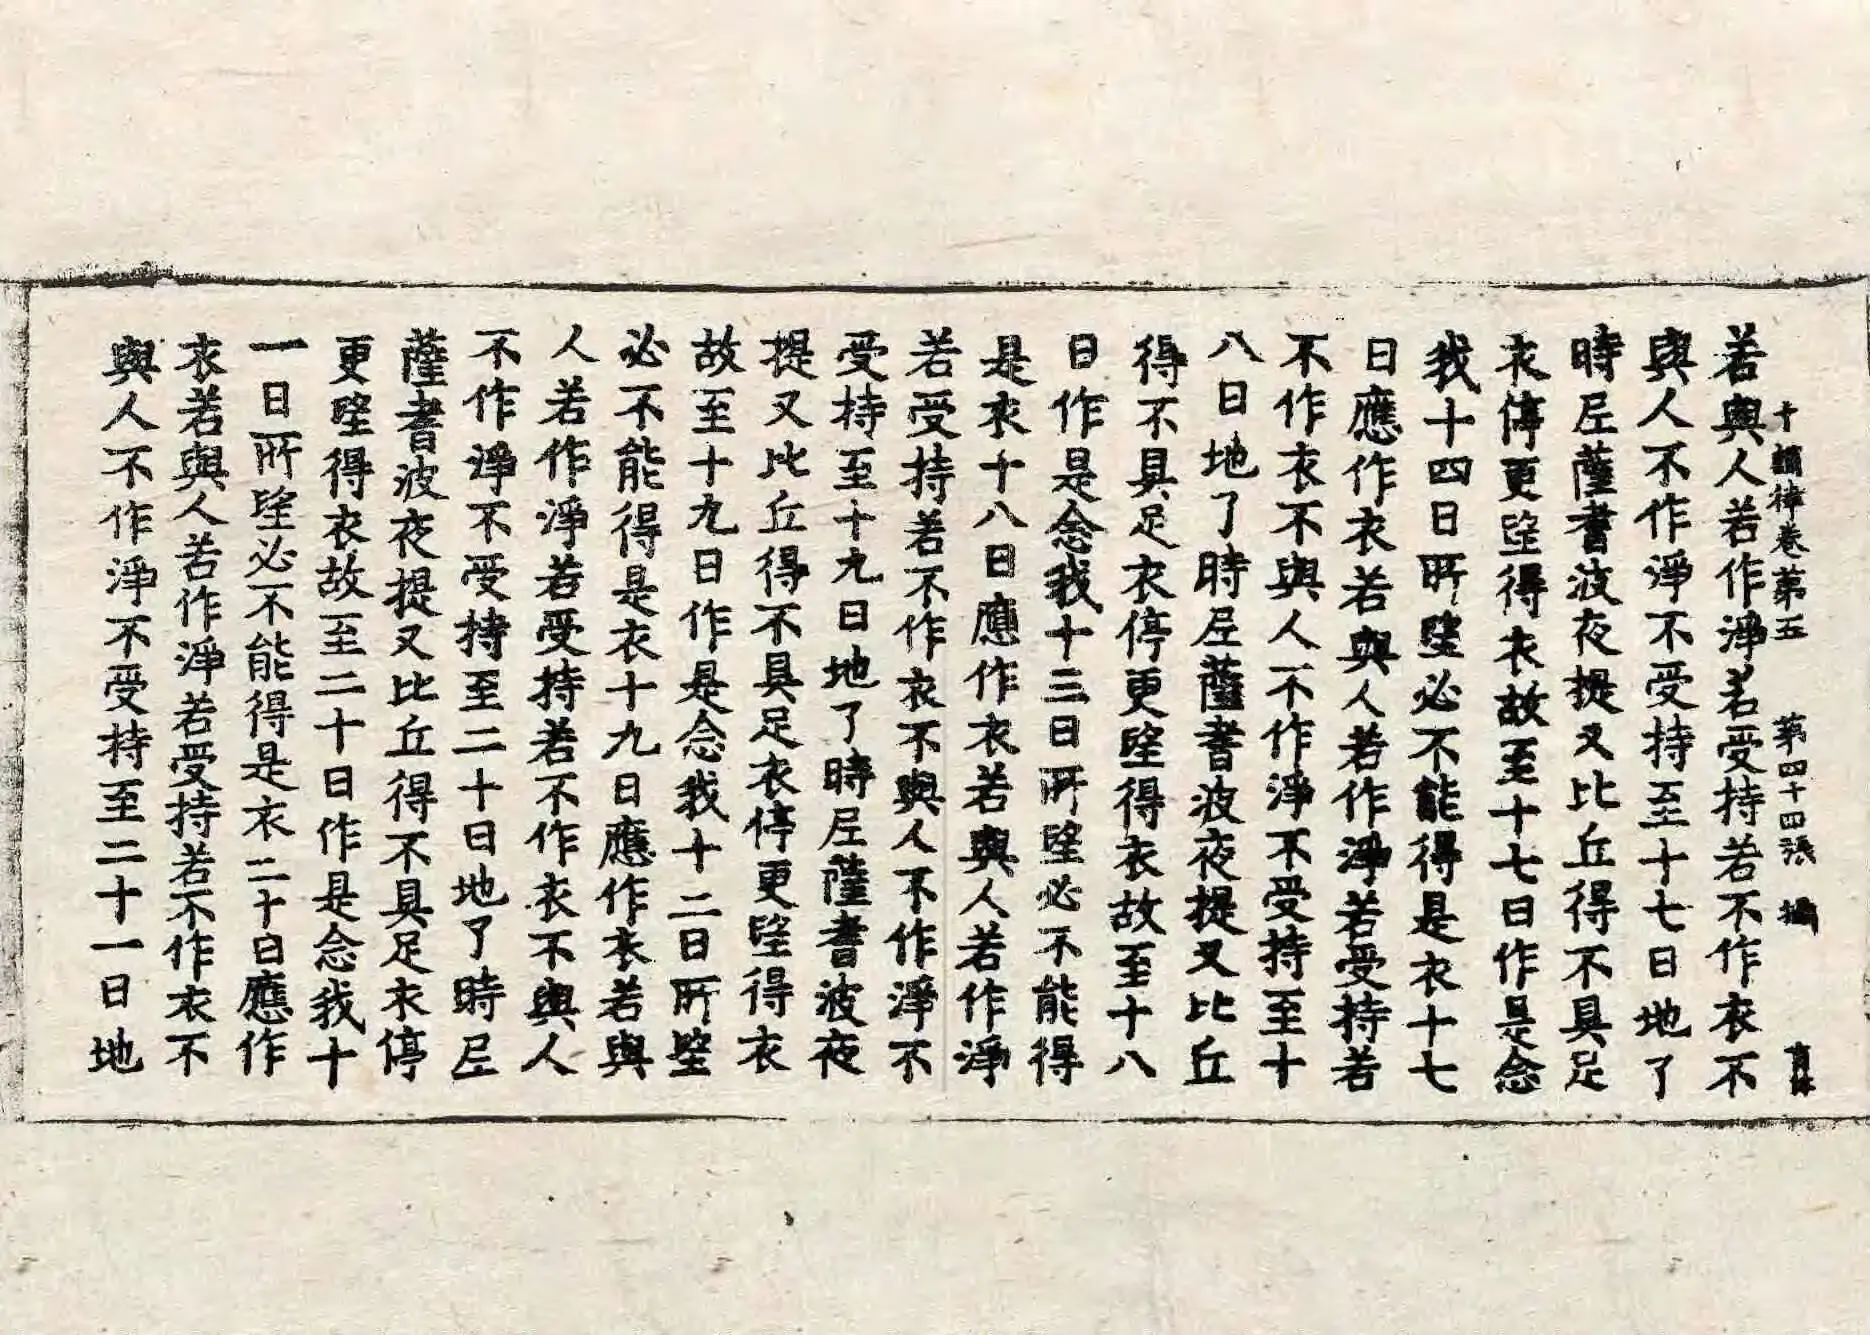 十誦律卷第五　第四十四張　攝
若與人若作淨若受持若不作衣不
與人不作淨不受持至十七日地了
時尼薩耆波夜提又比丘得不具足
衣停更望得衣故至十七日作是念
我十四日所望必不能得是衣十七
日應作衣若與人若作淨若受持若
不作衣不與人不作淨不受持至十
八日地了時尼薩耆波夜提又比丘
得不具足衣停更望得衣故至十八
日作是念我十三日所望必不能得
是衣十八日應作衣若與人若作淨
若受持若不作衣不與人不作淨不
受持至十九日地了時尼薩耆波夜
提又比丘得不具足衣停更望得衣
故至十九日作是念我十二日所望
必不能得是衣十九日應作衣若與
人若作淨若受持若不作衣不與人
不作淨不受持至二十日地了時尼
薩耆波夜提又比丘得不具足衣停
更望得衣故至二十日作是念我十
一日所望必不能得是衣二十日應作
衣若與人若作淨若受持若不作衣不
與人不作淨不受持至二十一日地